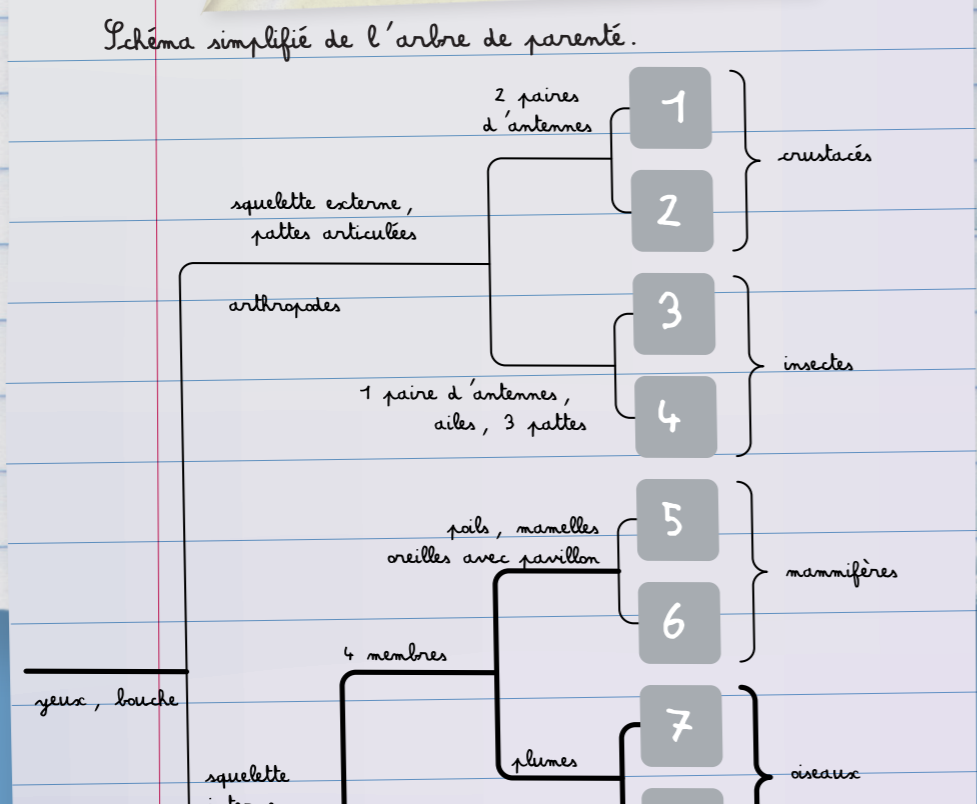 Schéma simplifié de l'arbre de parenté.
2 paires
d'antennes
1
crustacés
2
squelette externe,
pattes articulées
arthropodes
3
insectes
1 paire d'antennes,
ailes, 3 pattes
4
poils, mamelles
oreilles avec pavillon
5
mammifères
6
4 membres
yeux, bouche
7
plumes
oiseaux
squelette